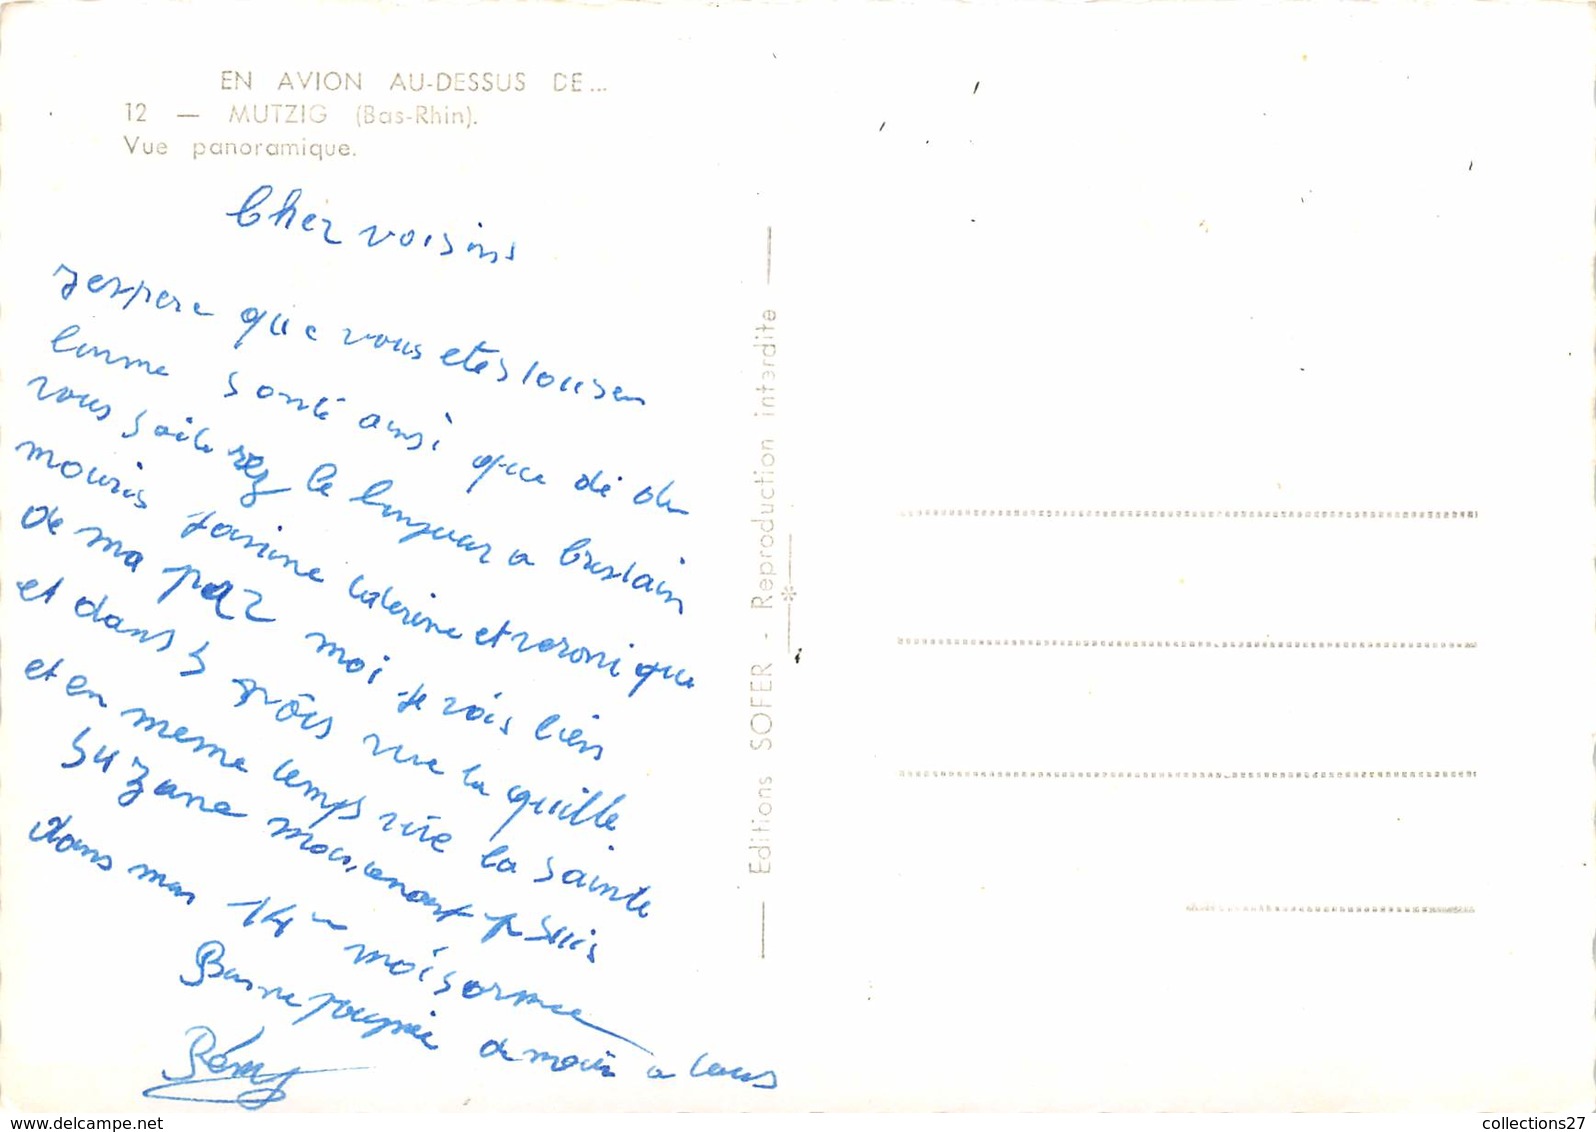 EN AVION AU-DESSUS DE...
12 — MUTZIG (Bas-Rhin).
Vue panoramique.
Cher voisins
Jespere que vous etes tous en
bonne santé ainsi que dé de
vous saite rez le bonjour a
mouris Janine caterine et veronique
de ma par moi je vois bien
et dans 5 mois vive la quille
et en meme temps vive la sainte
suzane moi, enant je suis
dans mon 14 mois armee
Bonne journée de main a tous
Rémy
Editions SOFER - Reproduction interdite
www.delcampe.net
collections27